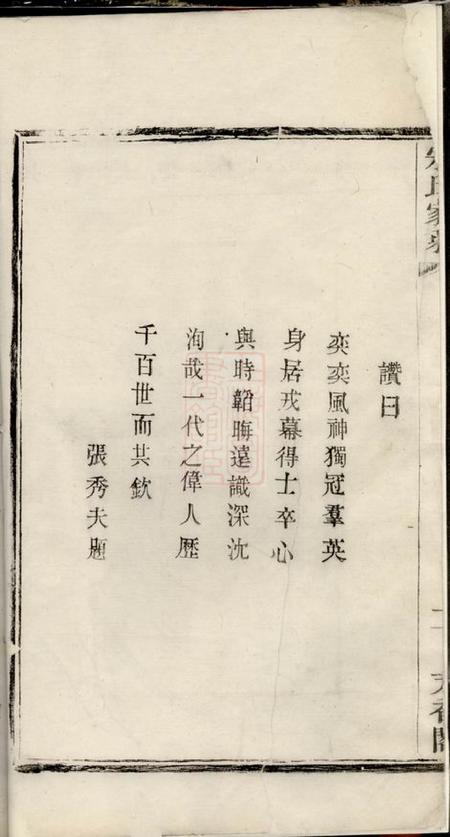 讚曰
奕奕風神獨冠羣英
身居戎幕得士卒心
與時韜晦遠識深沈
洵哉一代之偉人歷
千百世而共欽
張秀夫題